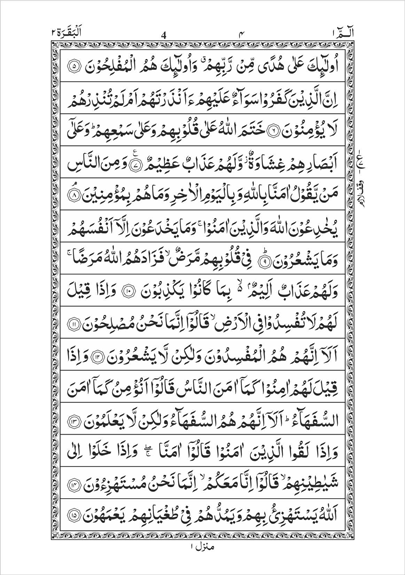 الٓمّٓ ١ ٤ 4 اَلْبَقَرَة ٢
اُولٰٓئِكَ عَلٰى هُدًى مِّنْ رَّبِّهِمْ ۙ وَاُولٰٓئِكَ هُمُ الْمُفْلِحُوْنَ ۝٥
اِنَّ الَّذِيْنَ كَفَرُوْا سَوَآءٌ عَلَيْهِمْ ءَاَنْذَرْتَهُمْ اَمْ لَمْ تُنْذِرْهُمْ
لَا يُؤْمِنُوْنَ ۝٦ خَتَمَ اللهُ عَلٰى قُلُوْبِهِمْ وَعَلٰى سَمْعِهِمْ ؕ وَعَلٰٓى
اَبْصَارِهِمْ غِشَاوَةٌ ؗ وَّلَهُمْ عَذَابٌ عَظِيْمٌ ۝٧ وَمِنَ النَّاسِ
مَنْ يَّقُوْلُ اٰمَنَّا بِاللهِ وَبِالْيَوْمِ الْاٰخِرِ وَمَا هُمْ بِمُؤْمِنِيْنَ ۝٨
يُخٰدِعُوْنَ اللهَ وَالَّذِيْنَ اٰمَنُوْا ۚ وَمَا يَخْدَعُوْنَ اِلَّآ اَنْفُسَهُمْ
وَمَا يَشْعُرُوْنَ ؕ ۝٩ فِيْ قُلُوْبِهِمْ مَّرَضٌ ۙ فَزَادَهُمُ اللهُ مَرَضًا ۚ
وَلَهُمْ عَذَابٌ اَلِيْمٌ ۙ۬ بِمَا كَانُوْا يَكْذِبُوْنَ ۝١٠ وَاِذَا قِيْلَ
لَهُمْ لَا تُفْسِدُوْا فِي الْاَرْضِ ۙ قَالُوْٓا اِنَّمَا نَحْنُ مُصْلِحُوْنَ ۝١١
اَلَآ اِنَّهُمْ هُمُ الْمُفْسِدُوْنَ وَلٰكِنْ لَّا يَشْعُرُوْنَ ۝١٢ وَاِذَا
قِيْلَ لَهُمْ اٰمِنُوْا كَمَآ اٰمَنَ النَّاسُ قَالُوْٓا اَنُؤْمِنُ كَمَآ اٰمَنَ
السُّفَهَآءُ ؕ اَلَآ اِنَّهُمْ هُمُ السُّفَهَآءُ وَلٰكِنْ لَّا يَعْلَمُوْنَ ۝١٣
وَاِذَا لَقُوا الَّذِيْنَ اٰمَنُوْا قَالُوْٓا اٰمَنَّا ۖۚ وَاِذَا خَلَوْا اِلٰى
شَيٰطِيْنِهِمْ ۙ قَالُوْٓا اِنَّا مَعَكُمْ ۙ اِنَّمَا نَحْنُ مُسْتَهْزِءُوْنَ ۝١٤
اَللهُ يَسْتَهْزِئُ بِهِمْ وَيَمُدُّهُمْ فِيْ طُغْيَانِهِمْ يَعْمَهُوْنَ ۝١٥
منزل ١